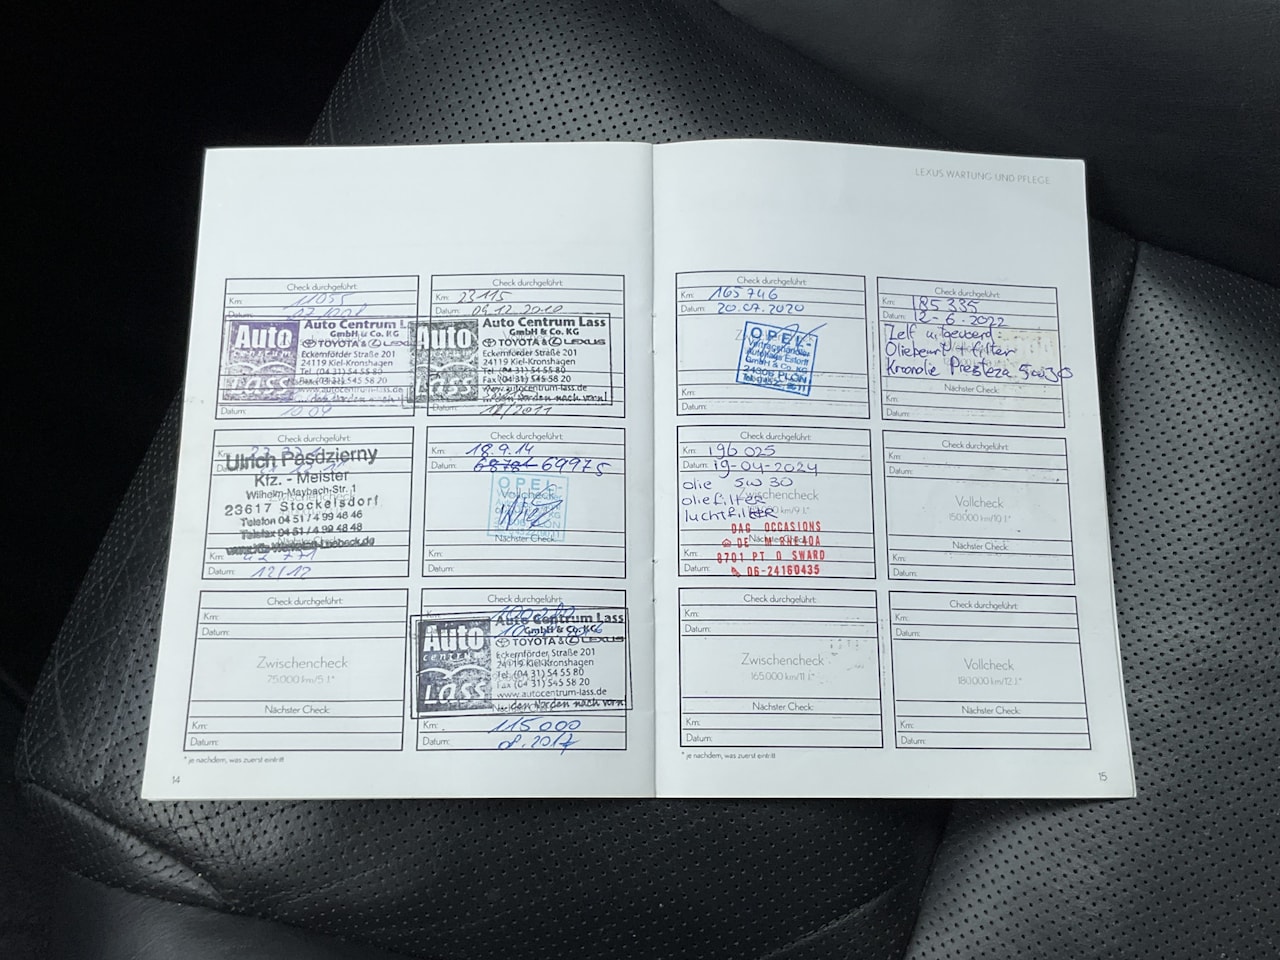 LEXUS WARTUNG UND PFLEGE
Check durchgeführt:
Km: 11055
Datum:
Auto
Lass
Auto Centrum L
GmbH & Co. KG
TOYOTA & LEXUS
Eckernförder Straße 201
24119 Kiel-Kronshagen
Tel. (04 31) 54 55 80
Fax (04 31) 545 58 20
www.autocentrum-lass.de
... den Norden nach vorn!
Datum: 10.09
Check durchgeführt:
Km: 23115
Datum: 09.12.2010
Auto
Auto Centrum Lass
GmbH & Co. KG
TOYOTA & LEXUS
Eckernförder Straße 201
24119 Kiel-Kronshagen
Tel. (04 31) 54 55 80
Fax (04 31) 545 58 20
www.autocentrum-lass.de
... den Norden nach vorn!
Datum: 12/2011
Check durchgeführt:
Km:
Datum:
Ulrich Pasdzierny
Kfz. - Meister
Wilhelm-Maybach-Str. 1
23617 Stockelsdorf
Telefon 04 51 / 4 99 46 46
Telefax 04 51 / 4 99 48 48
Nächster Check:
Km:
Datum: 12/12
Check durchgeführt:
Km: 18.9.14
Datum: 69975
Vollcheck
OPEL-
Nächster Check:
Km:
Datum:
Check durchgeführt:
Km:
Datum:
Zwischencheck
75.000 km/5 J.*
Nächster Check:
Km:
Datum:
Check durchgeführt:
Km:
Datum:
Auto
centrum
Lass
Auto Centrum Lass
GmbH & Co. KG
TOYOTA & LEXUS
Eckernförder Straße 201
24119 Kiel-Kronshagen
Tel. (04 31) 54 55 80
Fax (04 31) 545 58 20
www.autocentrum-lass.de
... den Norden nach vorn!
Km: 115000
Datum: 08.2017
* je nachdem, was zuerst eintritt
14
Check durchgeführt:
Km: 165746
Datum: 20.07.2020
OPEL-
Vertragshändler
Autohaus Estorff
GmbH & Co. KG
24306 PLÖN
Km:
Datum:
Check durchgeführt:
Km: 185335
Datum: 2-6-2022
Zelf uitgevoerd:
Oliebeurt + filter
Kroonolie Presteza 5w30
Nächster Check:
Km:
Datum:
Check durchgeführt:
Km: 196025
Datum: 19-04-2024
olie 5W30
oliefilter
luchtfilter
Zwischencheck
DAG OCCASIONS
8701 PT
06-24160435
Nächster Check:
Km:
Datum:
Check durchgeführt:
Km:
Datum:
Vollcheck
150.000 km/10 J.*
Nächster Check:
Km:
Datum:
Check durchgeführt:
Km:
Datum:
Zwischencheck
165.000 km/11 J.*
Nächster Check:
Km:
Datum:
Check durchgeführt:
Km:
Datum:
Vollcheck
180.000 km/12 J.*
Nächster Check:
Km:
Datum:
* je nachdem, was zuerst eintritt
15